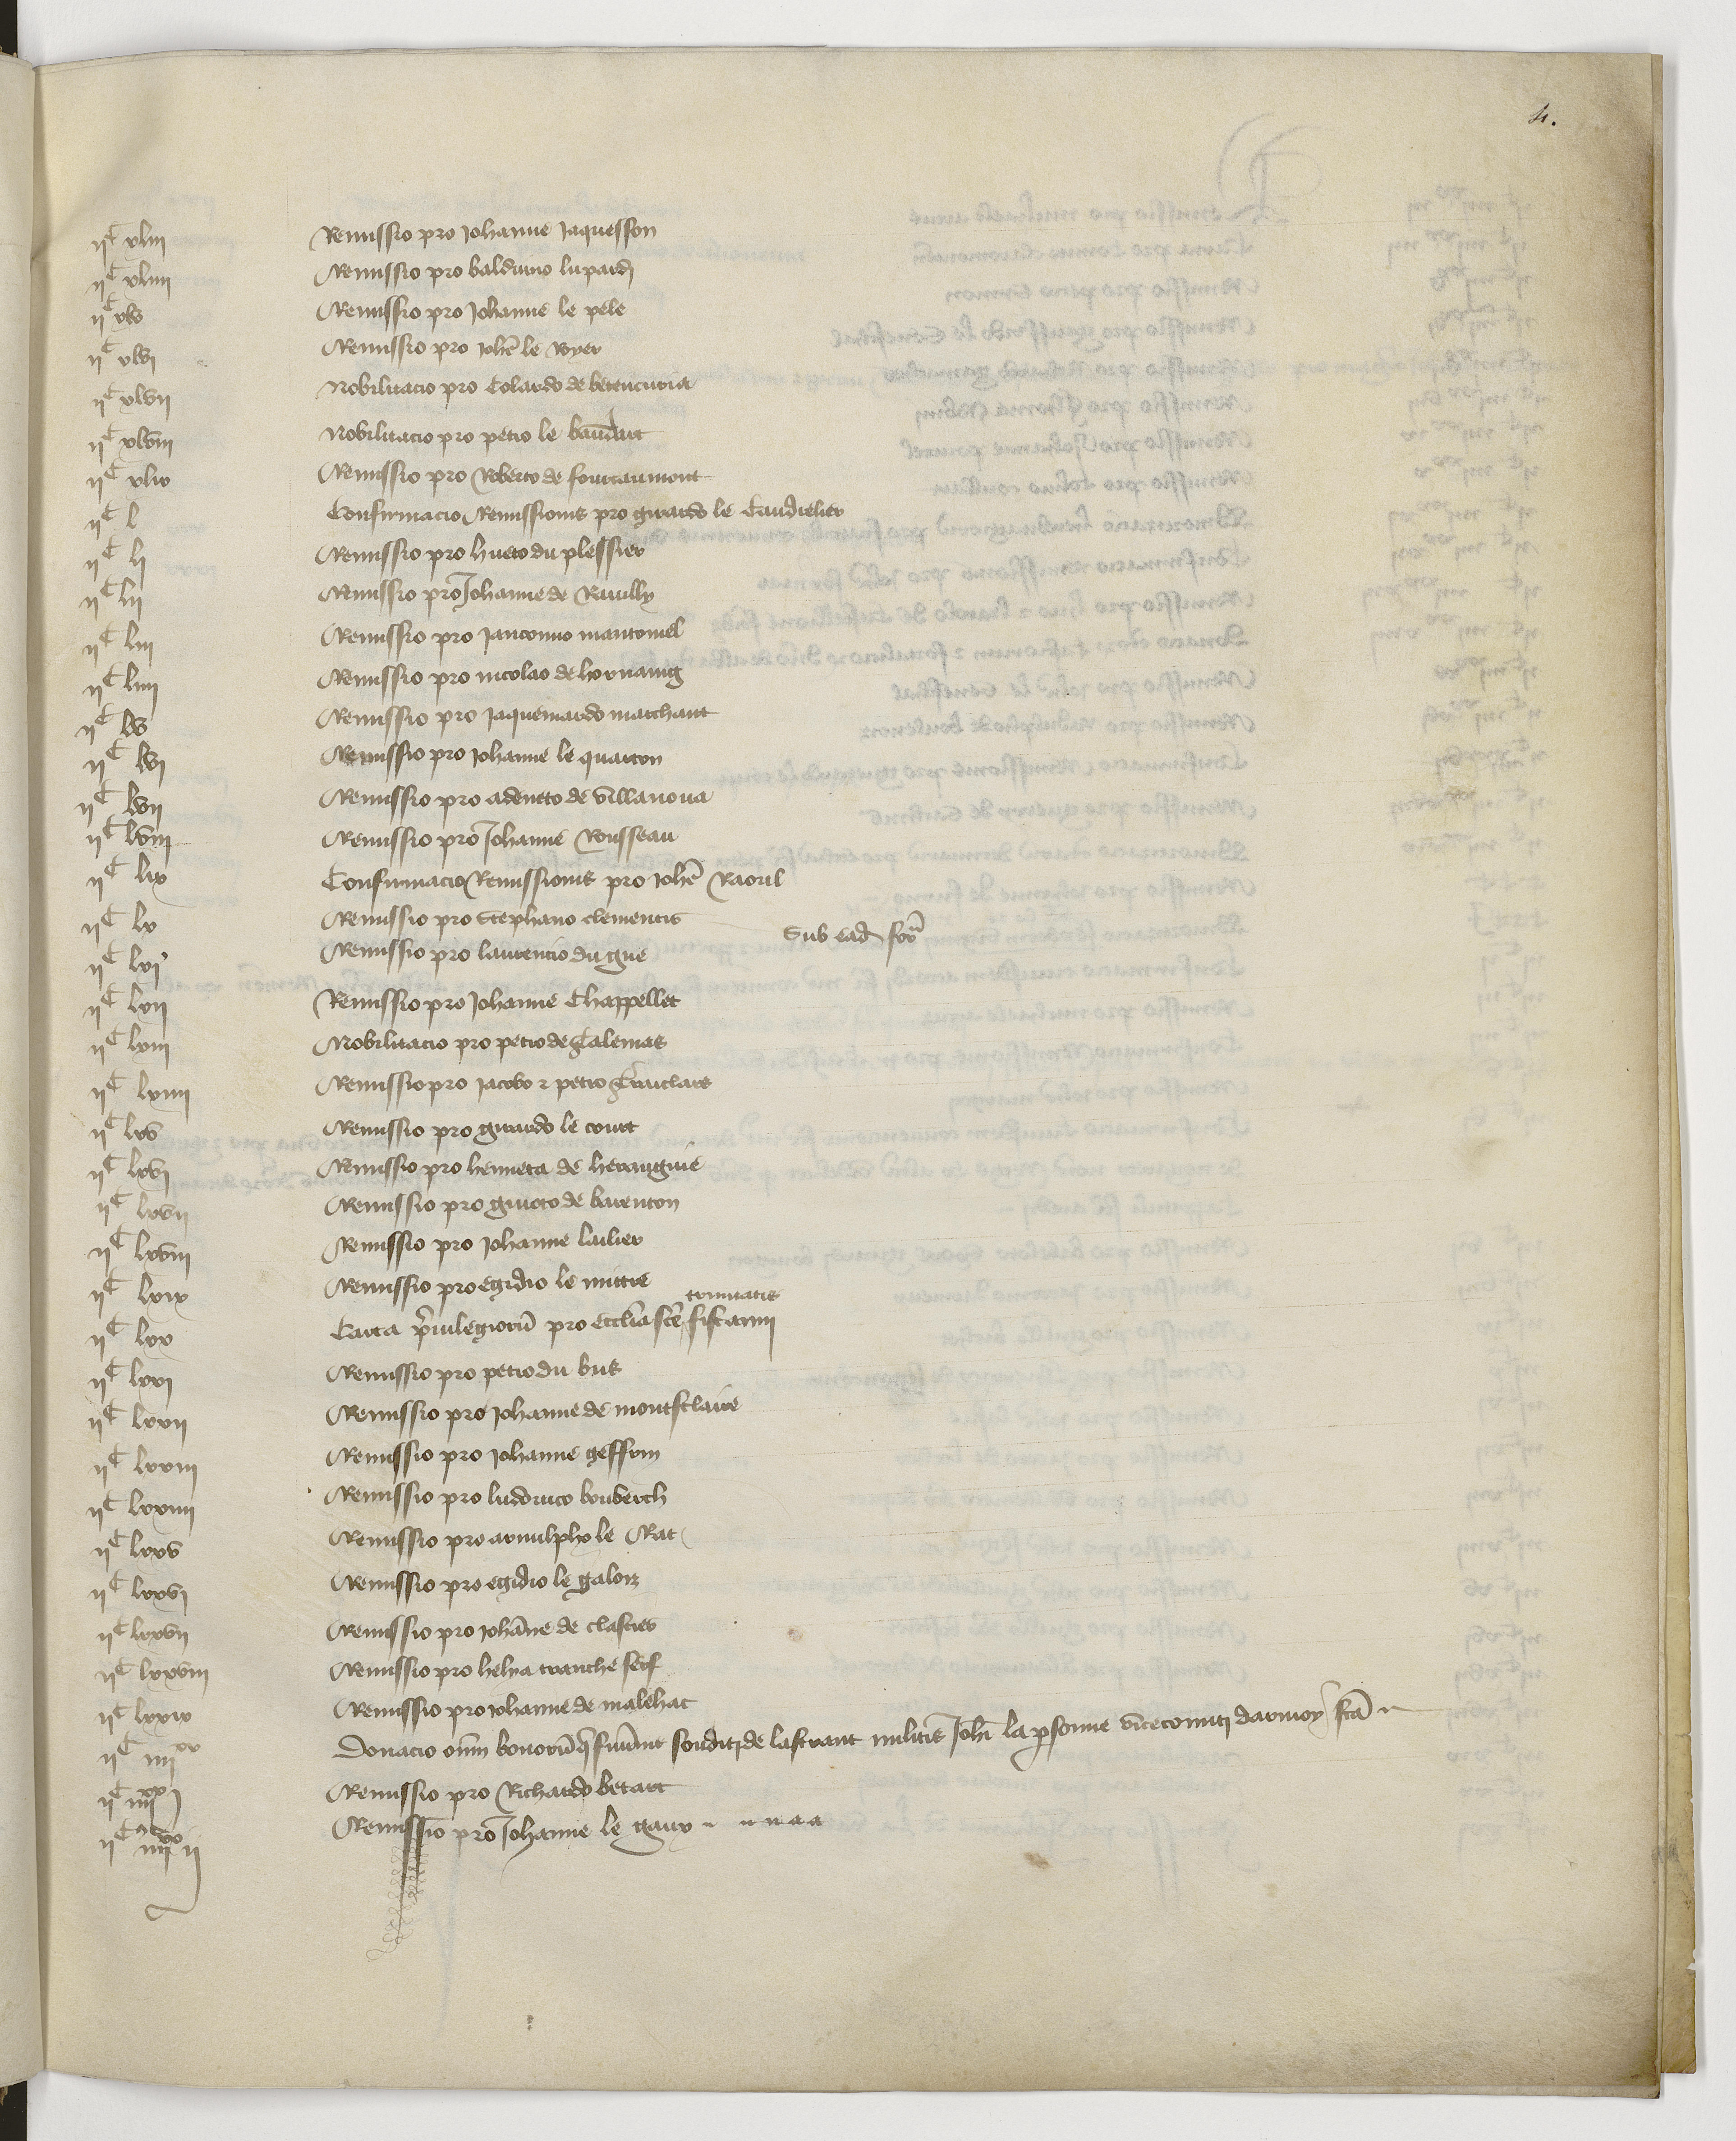 4.
IIC XLIII Remissio pro Johanne Jaquesson
IIC XLIIII Remissio pro balduino lupardi
IIC XLV Remissio pro Johanne le pele
IIC XLVI Remissio pro Johe le Royer
IIC XLVII Nobilitacio pro Colardo de betencuria
IIC XLVIII Nobilitacio pro petro le baudrait
IIC XLIX Remissio pro Roberto de fourcaumont
IIC L Confirmacio Remissionis pro girardo le Caudrelier
IIC LI Remissio pro hueto du plessier
IIC LII Remissio pro Johanne de Ruully
IIC LIII Remissio pro Janconno mantouiel
IIC LIIII Remissio pro nicolao de hornaing
IIC LV Remissio pro Jaquemardo marchant
IIC LVI Remissio pro Johanne le quarton
IIC LVII Remissio pro adenetto de villanova
IIC LVIII Remissio pro Johanne Rousseau
IIC LIX Confirmacio Remissionis pro Johe Raoul
IIC LX Remissio pro Stephano clementis
sub ead for
IIC LXI Remissio pro laurencio du gue
IIC LXII Remissio pro Johanne Chappellet
IIC LXIII Nobilitacio pro petro de Talemas
IIC LXIIII Remissio pro Jacobo et petro
IIC LXV Remissio pro girardo le court
IIC LXVI Remissio pro henneta de heranguie
IIC LXVII Remissio pro guioto de barenton
IIC LXVIII Remissio pro Johanne lailier
IIC LXIX Remissio pro egidio le mittre
IIC LXX Carta privilegiorum pro ecclesia sce trinitatis fiscanni
IIC LXXI Remissio pro petro du bus
IIC LXXII Remissio pro Johanne de montsclaire
IIC LXXIII Remissio pro Johanne geffrin
IIC LXXIIII Remissio pro ludovico bouberch
IIC LXXV Remissio pro arnulpho le Rat
IIC LXXVI Remissio pro egidio le galoiz
IIC LXXVII Remissio pro Johanne de clastres
IIC LXXVIII Remissio pro helya tranche serf
IIC LXXIX Remissio pro Johanne de malehat
IIC IIIIXX Donacio omnium bonorum que fuerunt souditz de lastrant militis Johi la personne vicecomiti darmoy fca
IIC IIIIXX I Remissio pro Richardo betart
IIC IIIIXX II Remissio pro Johanne le gaux